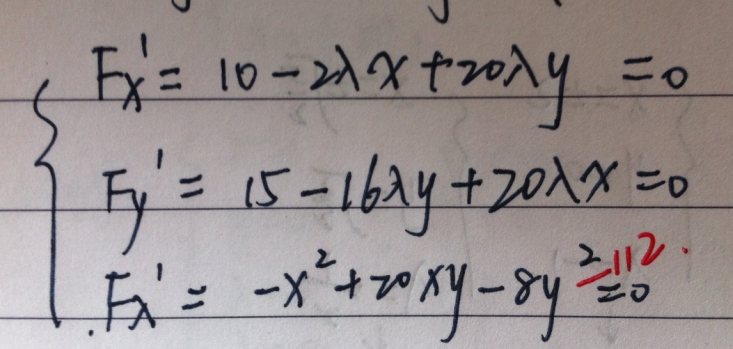 Fx' = 10 - 2λx + 20λy = 0
Fy' = 15 - 16λy + 20λx = 0
Fλ' = -x² + 20xy - 8y² - 112 = 0